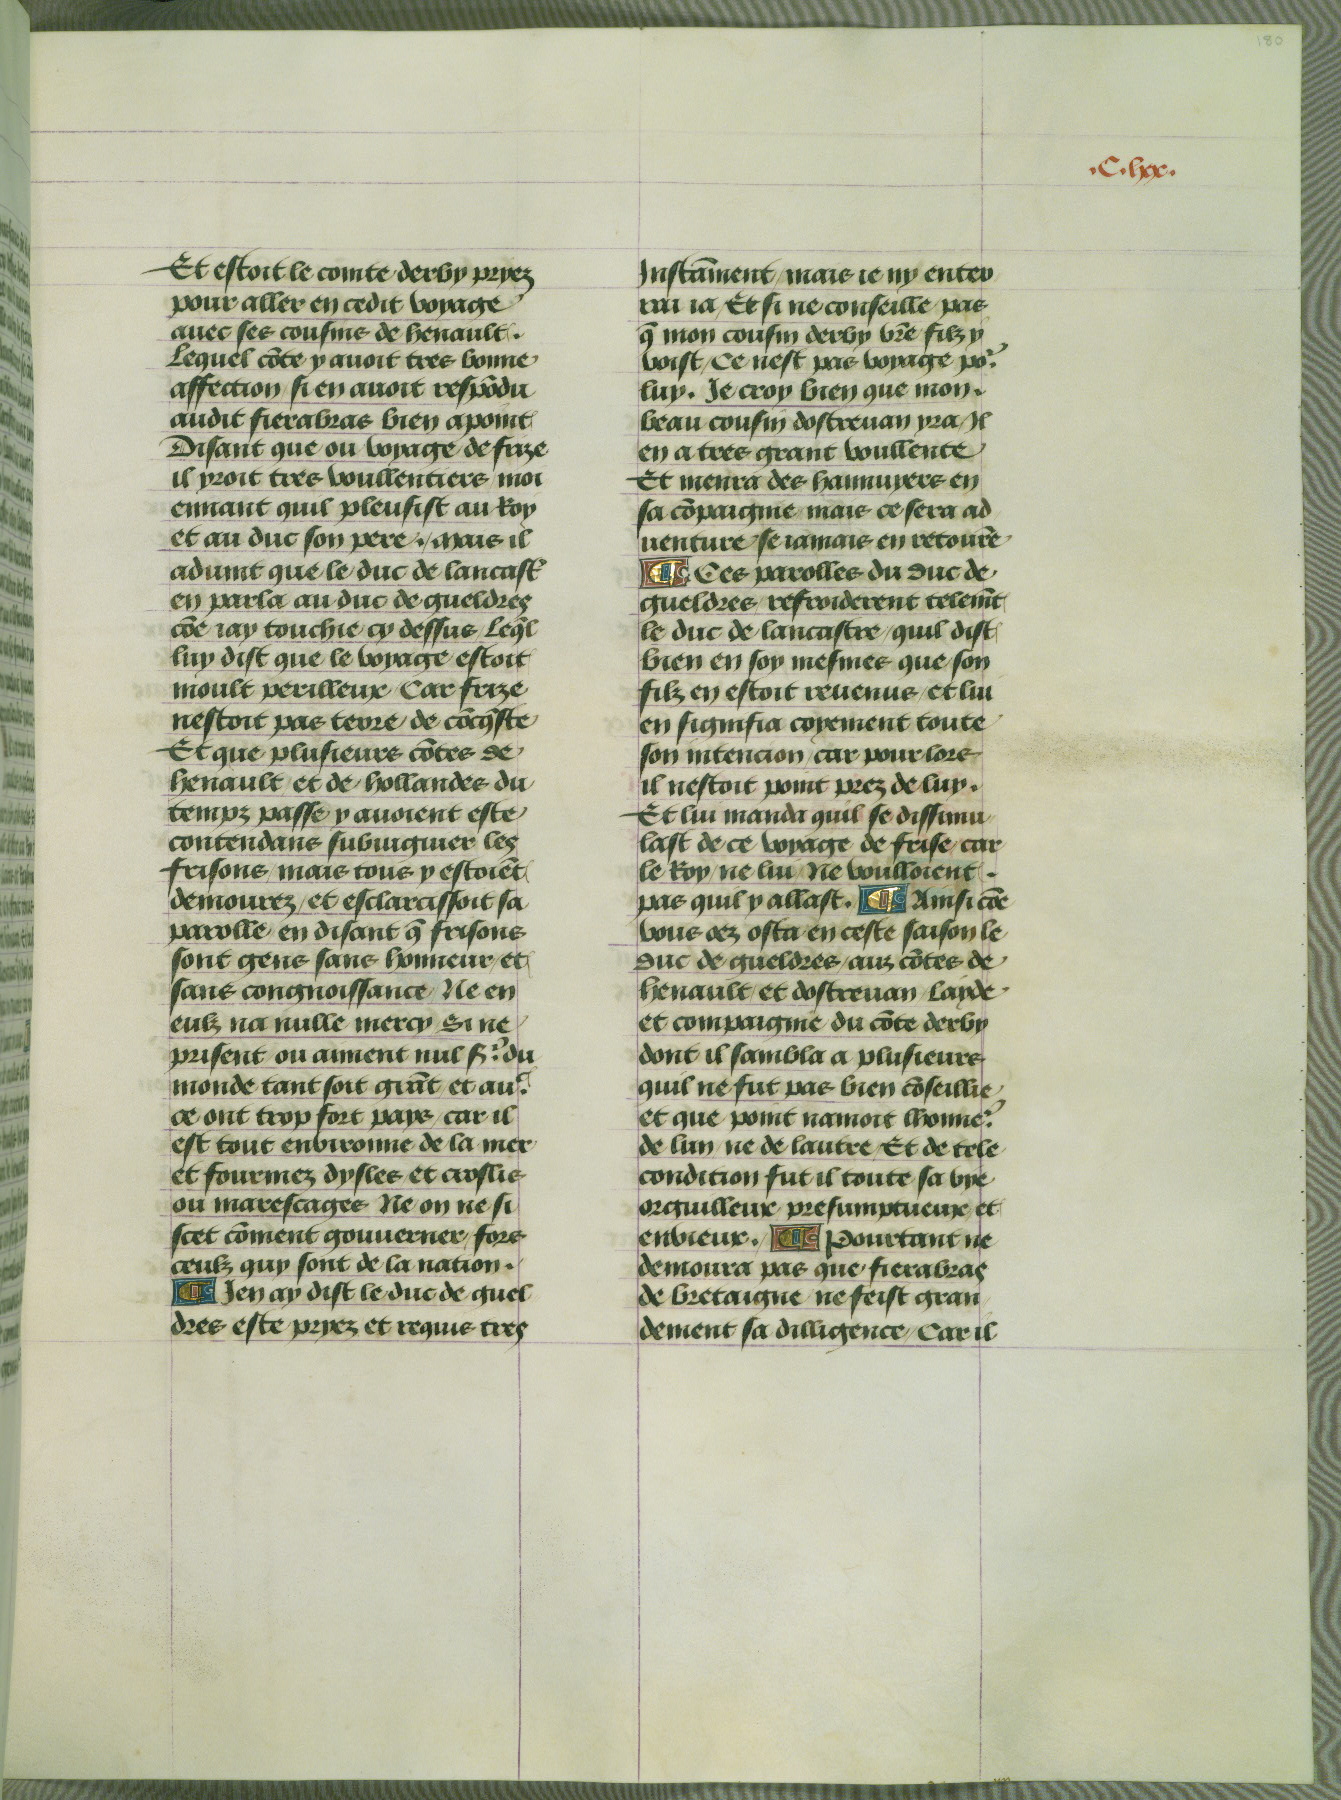 180
.C.lxx.
Et estoit le comte derby pryez
pour aller en cedit voyage
auec ses cousins de henault.
Lequel cõte y auoit tres bonne
affection si en auoit respõdu
audit fierabras bien a point
Disant que ou voyage de frize
il yroit tres voullentiers moi
ennant quil pleusist au Roy
et au duc son pere. mais il
aduint que le duc de lancast̃
en parla au duc de gueldres
cõe iay touchie cy dessus Leq̃l
luy dist que le voyage estoit
moult perilleux / Car frize
nestoit pas terre de cõcq̃ste
Et que plusieurs cõtes de
henault et de hollandes du
temps passe y auoient este
contendans subiuguier les
frisons mais tous y estoiẽt
demourez / et esclarcissoit sa
parolle en disant q̃ frisons
sont gens sans honneur / et
sans congnoissance / Ne en
eulz na nulle mercy Si ne
prisent ou aiment nul sr̃ du
monde tant soit grãt et au
ce ont trop fort pays / car il
est tout enuironne de la mer
et fourmez dysles et croslis
ou marescages Ne on ne si
scet cõment gouuerner / fors
ceulz quy sont de la nation.
Jen ay dist le duc de guel
dres este pryez et requis tres
Instãment / mais ie ny enter
rai ia / Et si ne conseille pas
q̃ mon cousin derby vr̃e filz y
voist / Ce nest pas voyage por
luy. Je croy bien que mon.
beau cousin dostreuan yra / Il
en a tres grant voullente
Et menra des hannuyers en
sa cõpaignie mais ce sera ad
uenture se iamais en retourẽ
Ces parolles du duc de
gueldres refroiderent telemẽt
le duc de lancastre / quil dist
bien en soy mesmes que son
filz en estoit reuenus / et lui
en signifia coyement toute
son intencion / car pour lors
il nestoit point prez de luy.
Et lui manda quil se dissimu
last de ce voyage de frise / car
le Roy / ne lui / Ne voulloient.
pas quil y allast. Ainsi cõe
vous oez osta en ceste saison le
duc de gueldres / aux cõtes de
henault et dostreuan Layde
et compaignie du cõte derby
dont il sambla a plusieurs
quil ne fut pas bien cõseillie
et que point namoit lhonner
de lun ne de lautre / Et de tele
condition fut il toute sa vye
orguilleux presumptueux et
enuieux. Pourtant ne
demoura pas que / fierabras
de bretaigne ne feist gran
dement sa dilligence / Car il